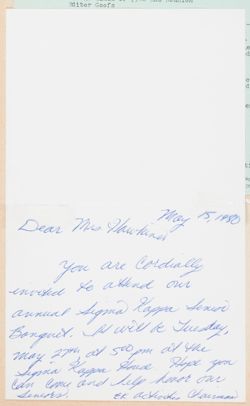 Editor Goofs
May 15, 1980
Dear Mrs Hawkins
You are cordially
invited to attend our
annual Sigma Kappa Senior
Banquet. It will be Tuesday,
May 27th at 5:00 pm at the
Sigma Kappa House. Hope you
can come and help honor our
Seniors.
Activities Chairman